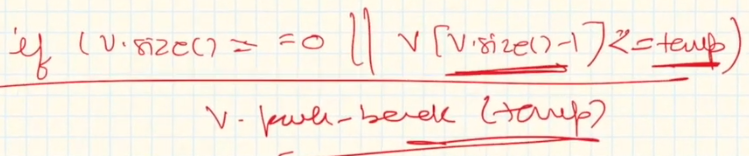 if (v.size() == 0 || v[v.size()-1] <= temp)
v.push-back (temp)